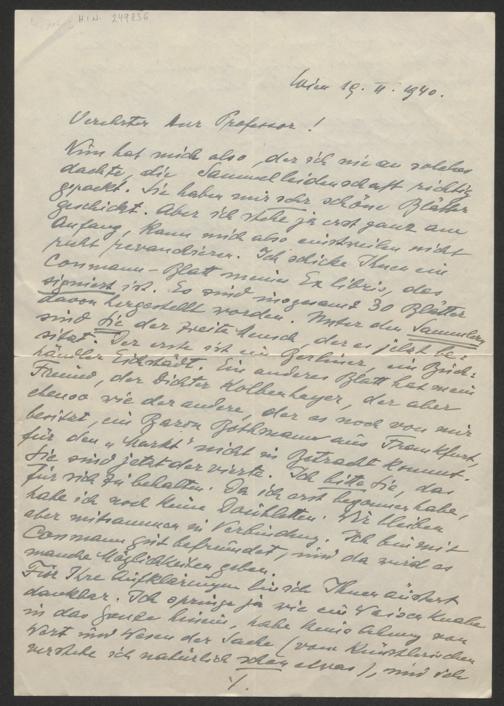 H.I.N. 249856
Wien 19. II. 1940.
Verehrter Herr Professor!
Nun hat mich also, der ich nie an solches
dachte, die Sammelleidenschaft richtig
gepackt. Sie haben mir sehr schöne Blätter
geschickt. Aber ich stehe ja erst ganz am
Anfang, kann mich also einstweilen nicht
recht revanchieren. Ich schicke Ihnen ein
Cossmann-Blatt meines Exlibris, das
signiert ist. Es sind insgesamt 30 Blätter
davon hergestellt worden. Unter den Sammlern
sind Sie der zweite Mensch, der es jetzt be-
sitzt. Der erste ist ein Berliner, ein Buch-
händler Eichstädt. Ein anderes Blatt hat mein
Freund, der Dichter Kolbenheyer, der aber
ebenso wie der andere, der es noch von mir
besitzt, ein Baron Bethmann aus Frankfurt,
für den „Markt" nicht in Betracht kommt.
Sie sind jetzt der vierte. Ich bitte Sie, das
für sich zu behalten. Da ich erst begonnen habe,
habe ich noch keine Dubletten. Wir bleiben
aber mitsammen in Verbindung. Ich bin mit
Cossmann gut befreundet, und da wird es
manche Möglichkeiten geben.
Für Ihre Aufklärungen bin ich Ihnen äußerst
dankbar. Ich springe ja wie ein Waisenknabe
in das Ganze hinein, habe keine Ahnung von
Wert und Wesen der Sache (vom Künstlerischen
verstehe ich natürlich schon etwas), und ich
./.